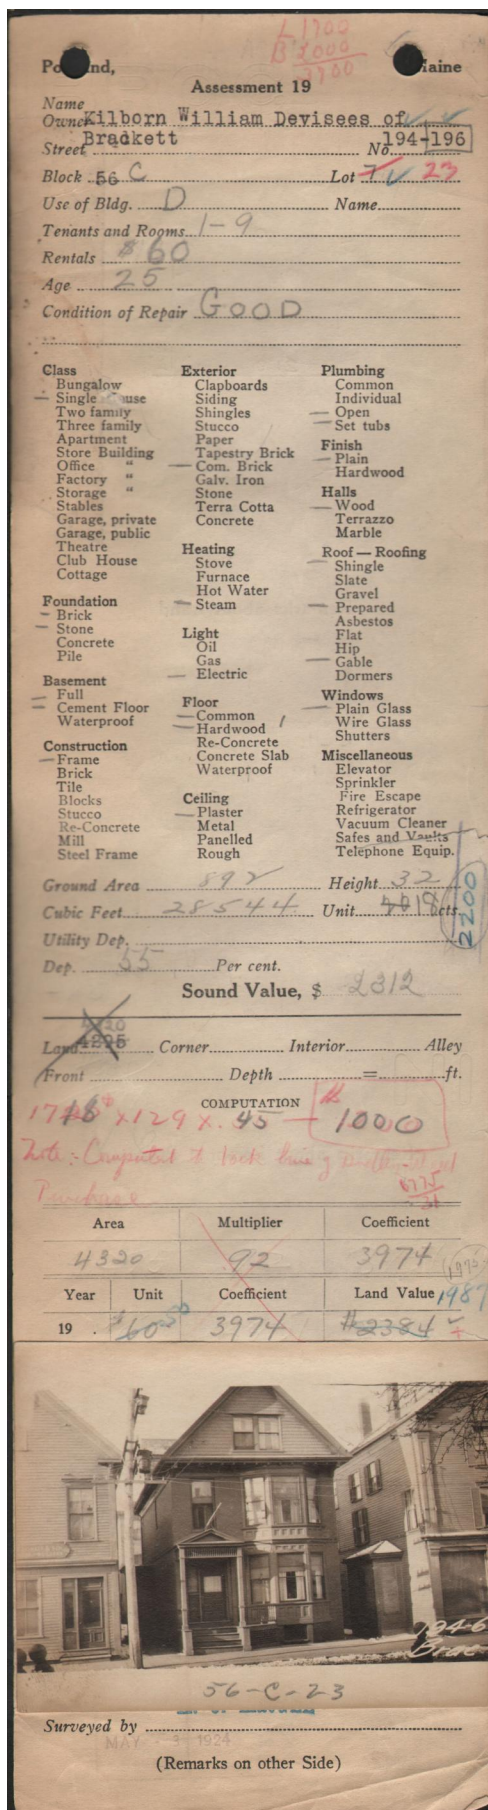 L 1700
B 2000
3700
Maine
Assessment 19
Name
Owner Kilborn William Devisees of
Street Brackett No. 194-196
Block 56 C Lot 7 23
Use of Bldg. D Name
Tenants and Rooms 1-9
Rentals $60
Age 25
Condition of Repair GOOD
Class
Bungalow
Single House
Two family
Three family
Apartment
Store Building
Office "
Factory "
Storage "
Stables
Garage, private
Garage, public
Theatre
Club House
Cottage
Foundation
Brick
Stone
Concrete
Pile
Basement
Full
Cement Floor
Waterproof
Construction
Frame
Brick
Tile
Blocks
Stucco
Re-Concrete
Mill
Steel Frame
Exterior
Clapboards
Siding
Shingles
Stucco
Paper
Tapestry Brick
Com. Brick
Galv. Iron
Stone
Terra Cotta
Concrete
Heating
Stove
Furnace
Hot Water
Steam
Light
Oil
Gas
Electric
Floor
Common
Hardwood 1
Re-Concrete
Concrete Slab
Waterproof
Ceiling
Plaster
Metal
Panelled
Rough
Plumbing
Common
Individual
Open
Set tubs
Finish
Plain
Hardwood
Halls
Wood
Terrazzo
Marble
Roof — Roofing
Shingle
Slate
Gravel
Prepared
Asbestos
Flat
Hip
Gable
Dormers
Windows
Plain Glass
Wire Glass
Shutters
Miscellaneous
Elevator
Sprinkler
Fire Escape
Refrigerator
Vacuum Cleaner
Safes and Vaults
Telephone Equip.
Ground Area 892 Height 32
Cubic Feet 28544 Unit 18 cts.
2200
Utility Dep.
Dep. 55 Per cent.
Sound Value, $ 2312
Land Corner Interior Alley
Front Depth = ft.
COMPUTATION
x 129 x .45 — 1000
Note: Computed to back line of
Purchase
Area Multiplier Coefficient
4320 .92 3974
1975
Year Unit Coefficient Land Value 1987
19 . 3974 $2384
194-6
Brac
56-C-23
Surveyed by
MAY 1924
(Remarks on other Side)